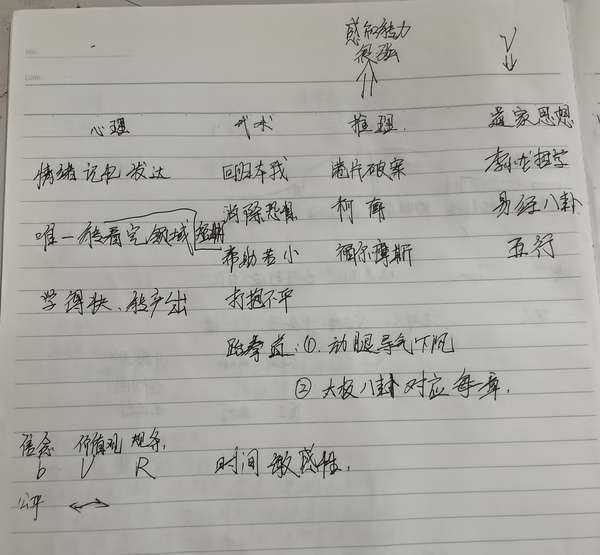 感知能力
很强
心理 武术 推理. 道家思想
情绪记忆发达 回归本我 港片破案 李小龙哲学
消除恐惧 柯南 易经八卦
唯一能看完领域
帮助弱小 福尔摩斯 五行
学得快、能产出 打抱不平
跆拳道:①. 动腿导气下沉
② 太极八卦对应每章.
信念 价值观 规条.
b V R 时间敏感性.
公平 ↔